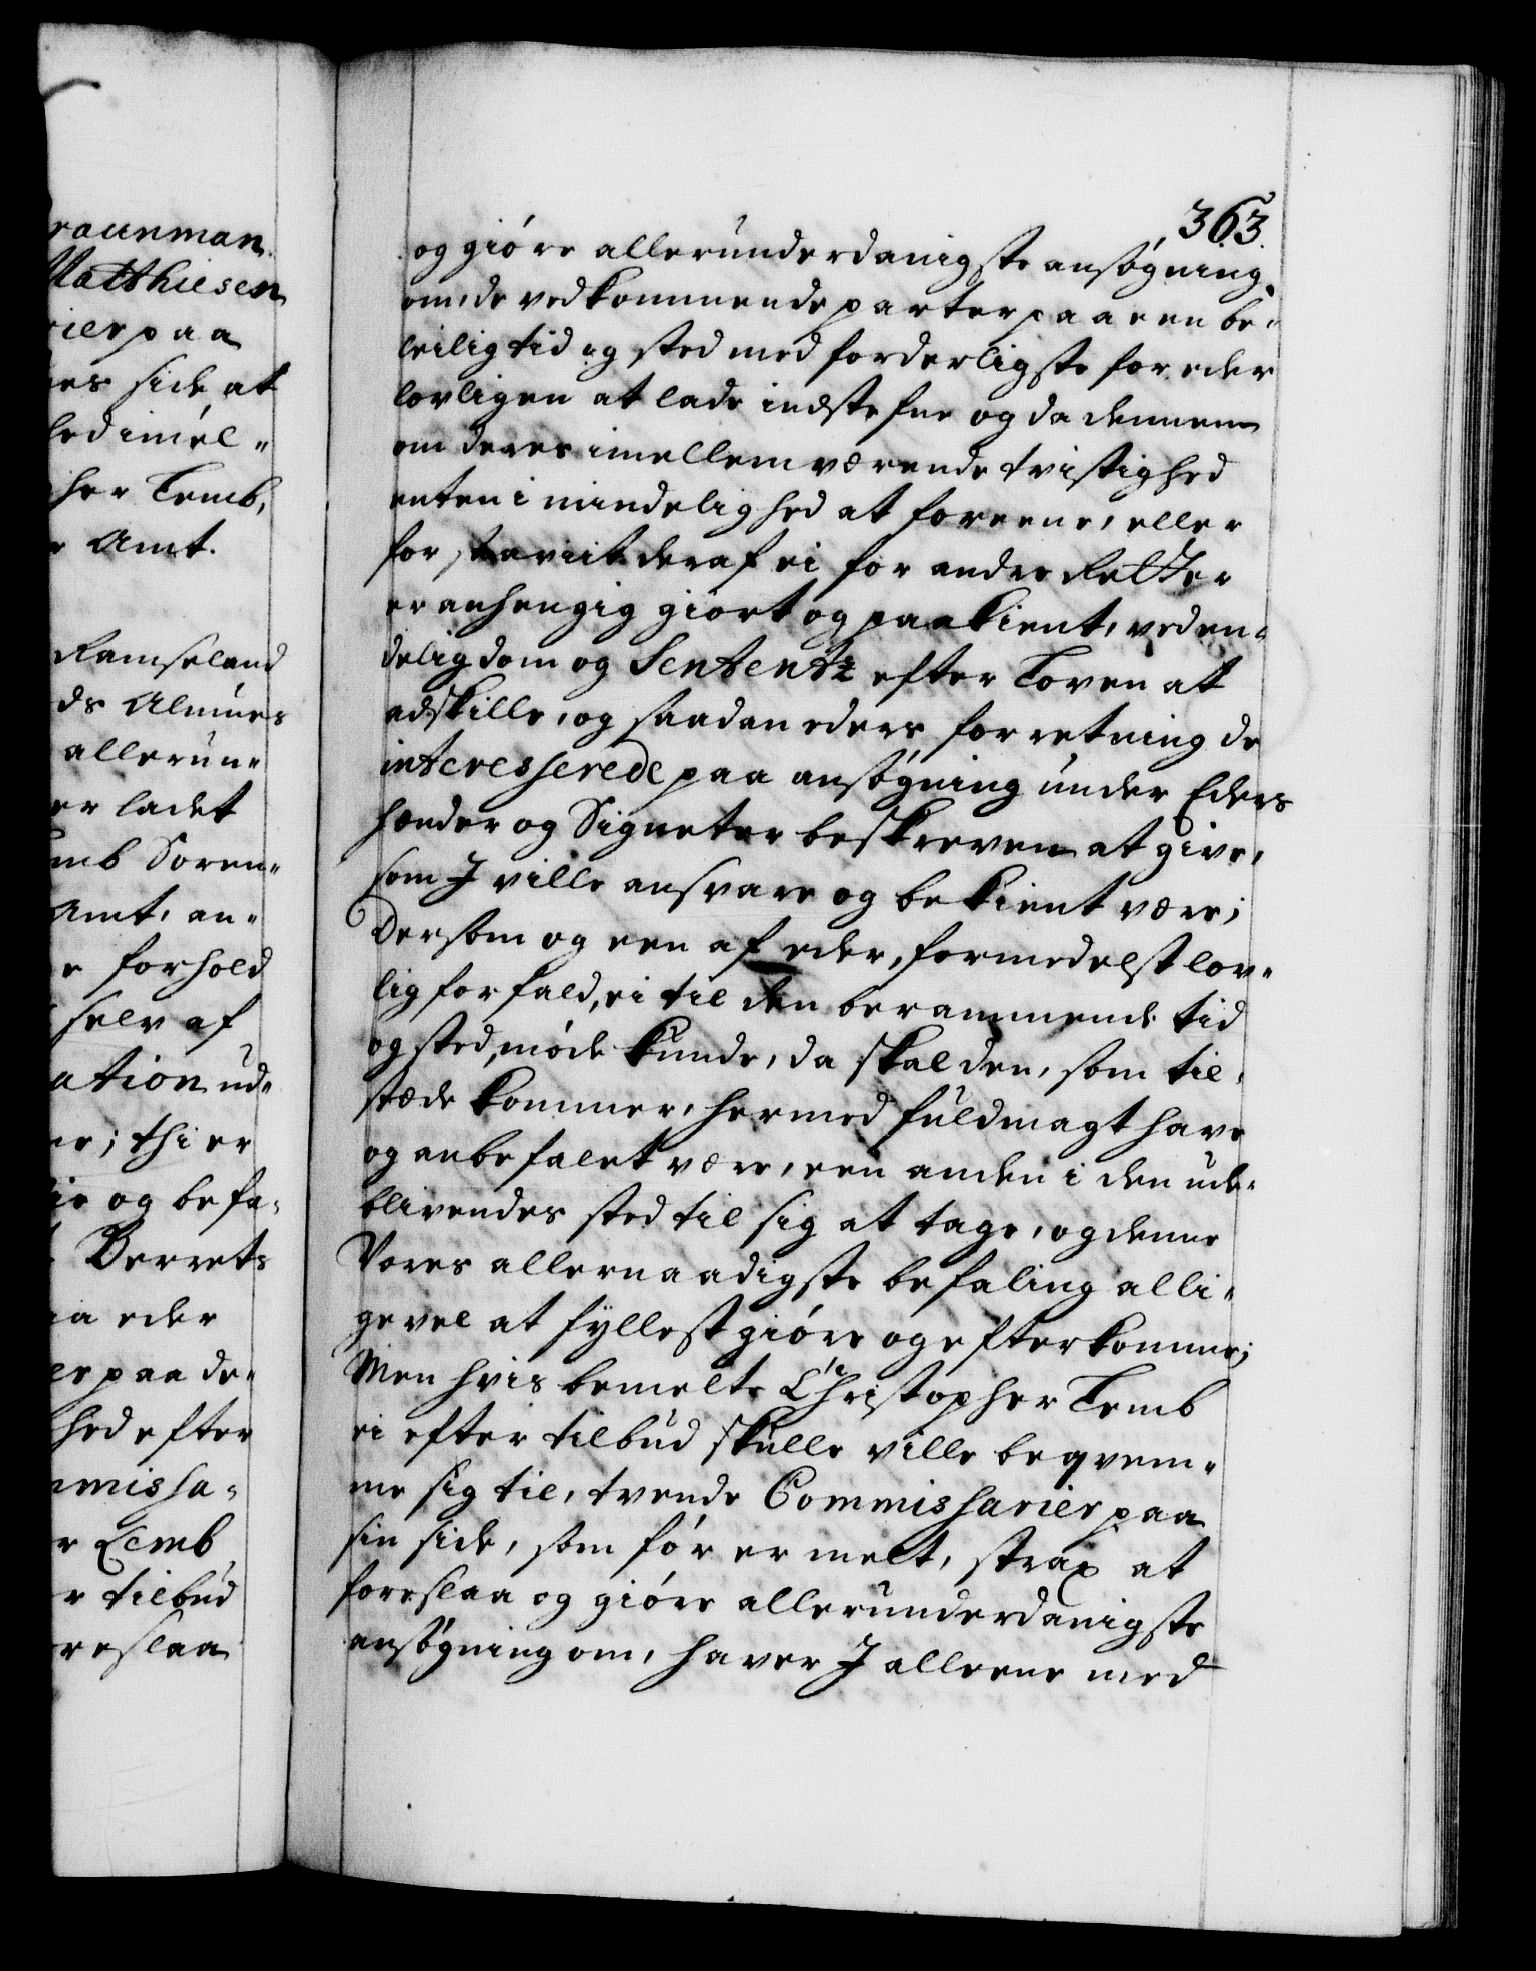 raunman
Matthiesen
rier paa
nes side at
hed imel-
her Lemb,
r Amt.
Ramseland
ds Almues
allerun-
er ladet
mb Soren-
Amt, an-
e forhold
selv af
ation ud-
ne; thi er
lie og befa-
Berrets
aa eder
er paa de-
hed efter
missa-
r Lemb
r tilbud
reslaa
363.
og giöre allerunderdanigste ansögning
om, de vedkommende parter paa een be-
leilig tid og sted med forderligste for eder
lovligen at lade indstefne og da dennem
om deres imellem værende tvistighed
enten i mindelighed at foreene, eller
for saavit deraf ei for andre Retter
er anhengig giort og paakient, ved en-
delig dom og Sententz efter Loven at
adskille, og saadan eders forretning de
interesserede paa ansögning under Eders
hænder og Signeter beskreven at give,
som I ville ansvare og bekient være;
Dersom og een af eder, formedelst lov-
lig forfald, ei til den berammende tid
og sted, möde kunde, da skal den, som til-
stæde kommer, hermed fuldmagt have
og anbefalet være, een anden i den ude-
blivendes sted til sig at tage, og denne
Vores allernaadigste befaling alli-
gevel at fyllestgiöre og efterkomme;
Men hvis bemelte Christopher Lemb
ei efter tilbud skulle ville beqvem-
me sig til, tvende Commissarier paa
sin side, som för er melt, strax at
foreslaa og giöre allerunderdanigste
ansögning om, haver I alleene med